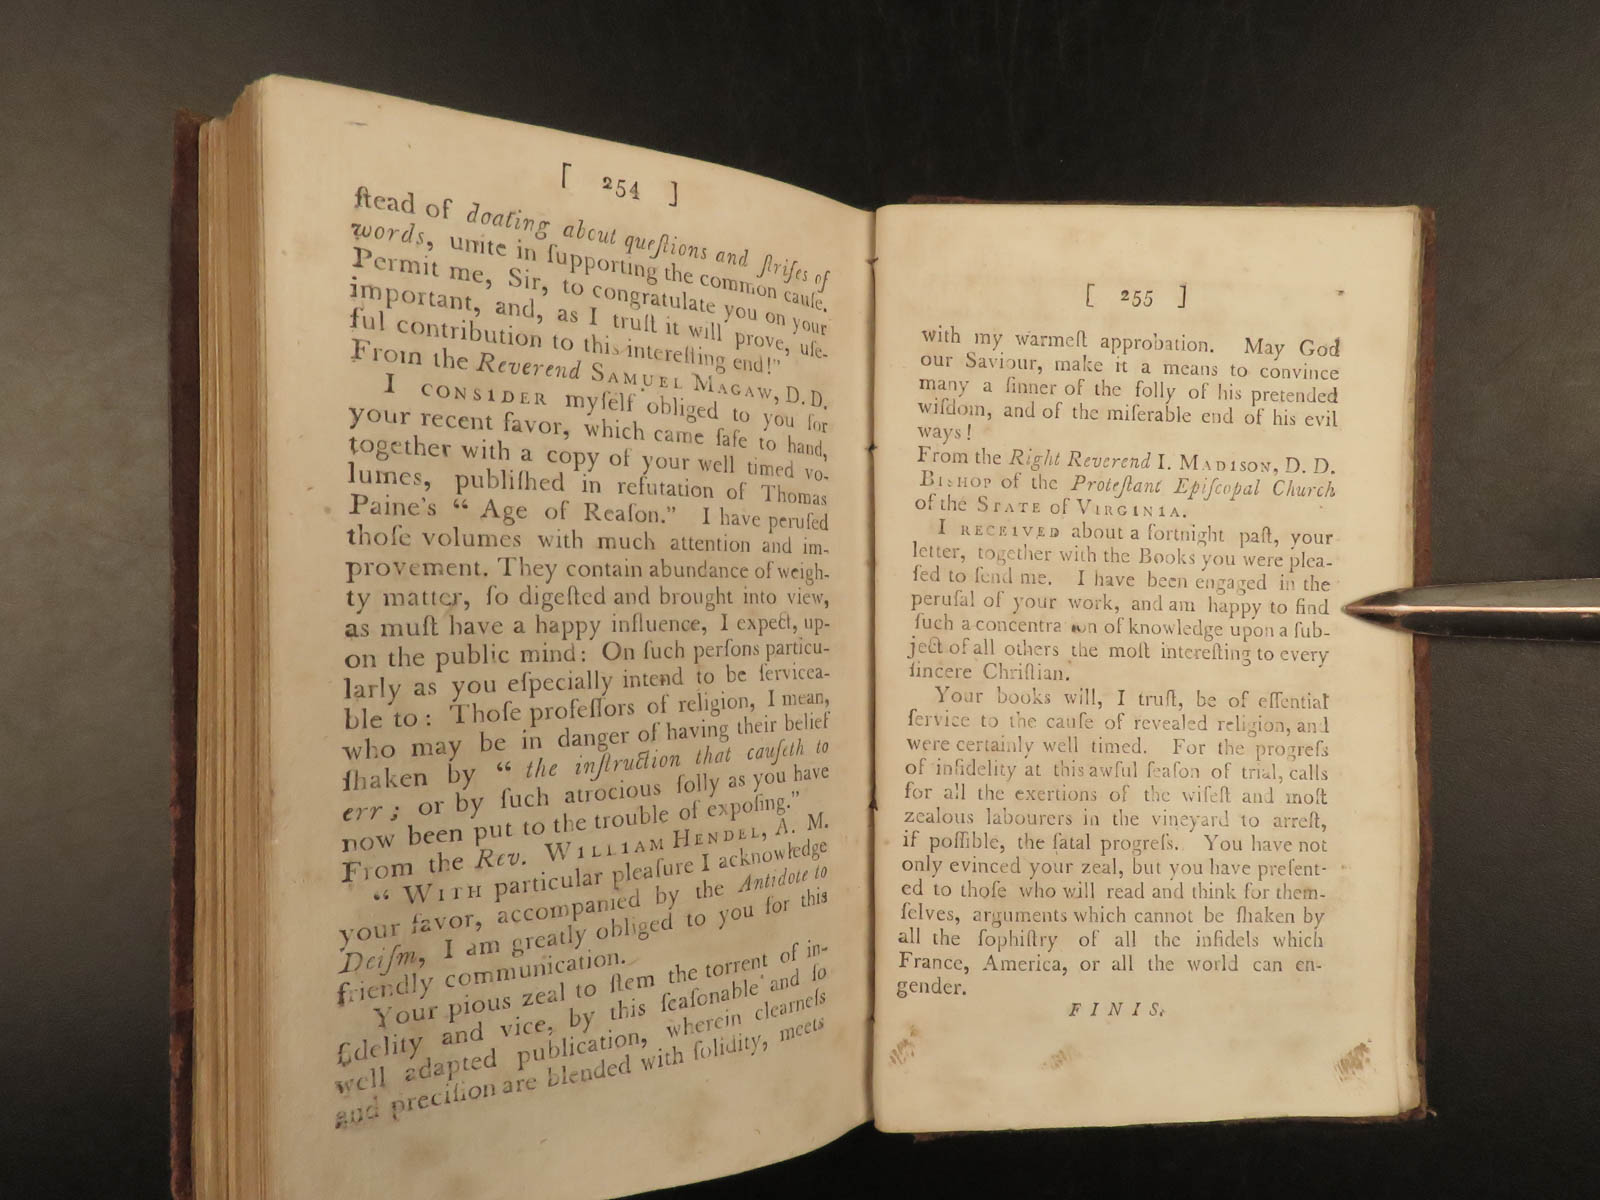 [ 254 ]
ſtead of doating about queſtions and ſtrifes of
words, unite in ſupporting the common cauſe.
Permit me, Sir, to congratulate you on your
important, and, as I truſt it will prove, uſe-
ful contribution to this intereſting end!"
From the Reverend SAMUEL MAGAW, D. D.
I CONSIDER myſelf obliged to you for
your recent favor, which came ſafe to hand,
together with a copy of your well timed vo-
lumes, publiſhed in refutation of Thomas
Paine's “ Age of Reaſon.” I have peruſed
thoſe volumes with much attention and im-
provement. They contain abundance of weigh-
ty matter, ſo digeſted and brought into view,
as muſt have a happy influence, I expect, up-
on the public mind: On ſuch perſons particu-
larly as you eſpecially intend to be ſervicea-
ble to : Thoſe profeſſors of religion, I mean,
who may be in danger of having their belief
ſhaken by “ the inſtruction that cauſeth to
err ; or by ſuch atrocious folly as you have
now been put to the trouble of expoſing.”
From the Rev. WILLIAM HENDEL, A. M.
“ WITH particular pleaſure I acknowledge
your favor, accompanied by the Antidote to
Deiſm, I am greatly obliged to you for this
friendly communication.
Your pious zeal to ſtem the torrent of in-
fidelity and vice, by this ſeaſonable and ſo
well adapted publication, wherein clearneſs
and preciſion are blended with ſolidity, meets
[ 255 ]
with my warmeſt approbation. May God
our Saviour, make it a means to convince
many a ſinner of the folly of his pretended
wiſdom, and of the miſerable end of his evil
ways !
From the Right Reverend I. MADISON, D. D.
BISHOP of the Proteſtant Epiſcopal Church
of the STATE of VIRGINIA.
I RECEIVED about a fortnight paſt, your
letter, together with the Books you were plea-
ſed to ſend me. I have been engaged in the
peruſal of your work, and am happy to find
ſuch a concentration of knowledge upon a ſub-
ject of all others the moſt intereſting to every
ſincere Chriſtian.
Your books will, I truſt, be of eſſential
ſervice to the cauſe of revealed religion, and
were certainly well timed. For the progreſs
of infidelity at this awful ſeaſon of trial, calls
for all the exertions of the wiſeſt and moſt
zealous labourers in the vineyard to arreſt,
if poſſible, the fatal progreſs. You have not
only evinced your zeal, but you have preſent-
ed to thoſe who will read and think for them-
ſelves, arguments which cannot be ſhaken by
all the ſophiſtry of all the infidels which
France, America, or all the world can en-
gender.
FINIS.